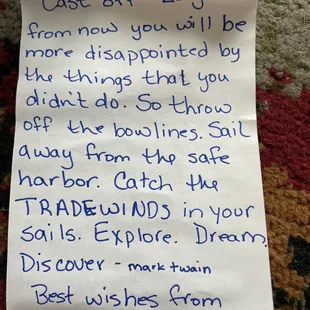 from now you will be
more disappointed by
the things that you
didn't do. So throw
off the bowlines. Sail
away from the safe
harbor. Catch the
TRADEWINDS in your
sails. Explore. Dream.
Discover - mark twain
Best wishes from